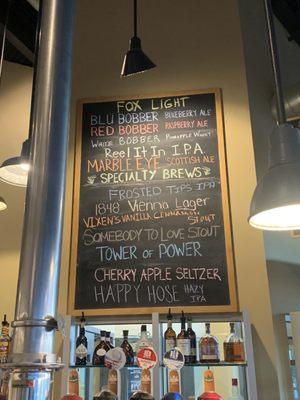 FOX LIGHT
BLU BOBBER BLUEBERRY ALE
RED BOBBER RASPBERRY ALE
WHITE BOBBER PINEAPPLE WHEAT
Reel It In IPA
MARBLE EYE SCOTTISH ALE
SPECIALTY BREWS
FROSTED TIPS IPA
1848 Vienna Lager
VIXEN'S VANILLA STOUT
SOMEBODY TO LOVE STOUT
TOWER OF POWER
CHERRY APPLE SELTZER
HAPPY HOSE HAZY IPA